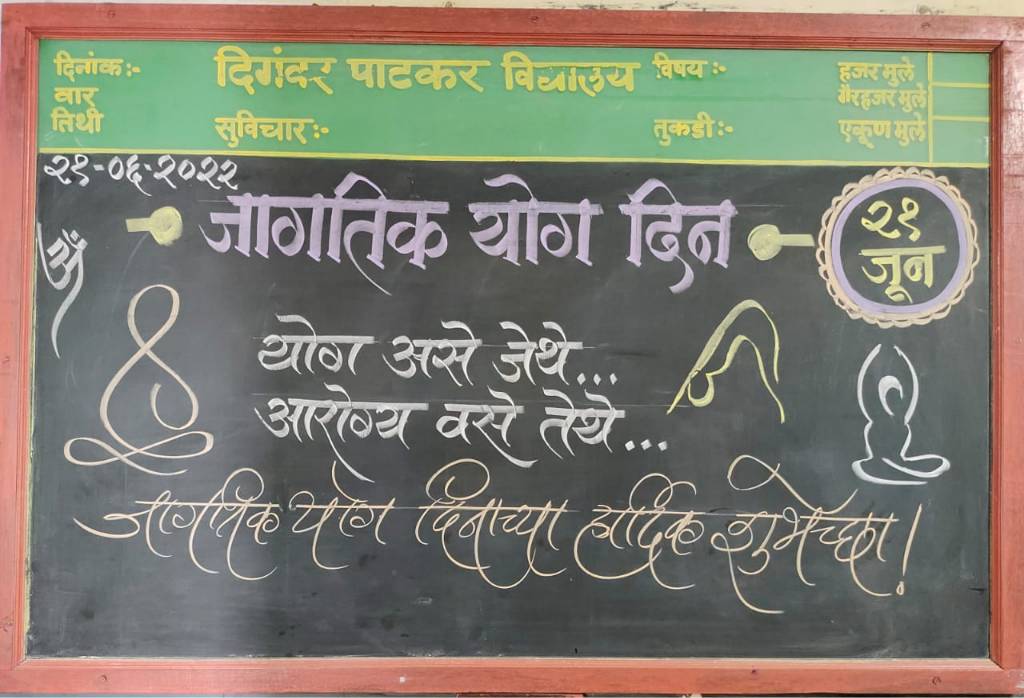 दिनांक:- दिगंबर पाटकर विद्यालय विषय:- हजर मुले
वार गैरहजर मुले
तिथी सुविचार:- तुकडी:- एकूण मुले
२१-०६-२०२२
जागतिक योग दिन
२१
जून
ॐ
योग असे जेथे...
आरोग्य वसे तेथे...
जागतिक योग दिनाच्या हार्दिक शुभेच्छा!